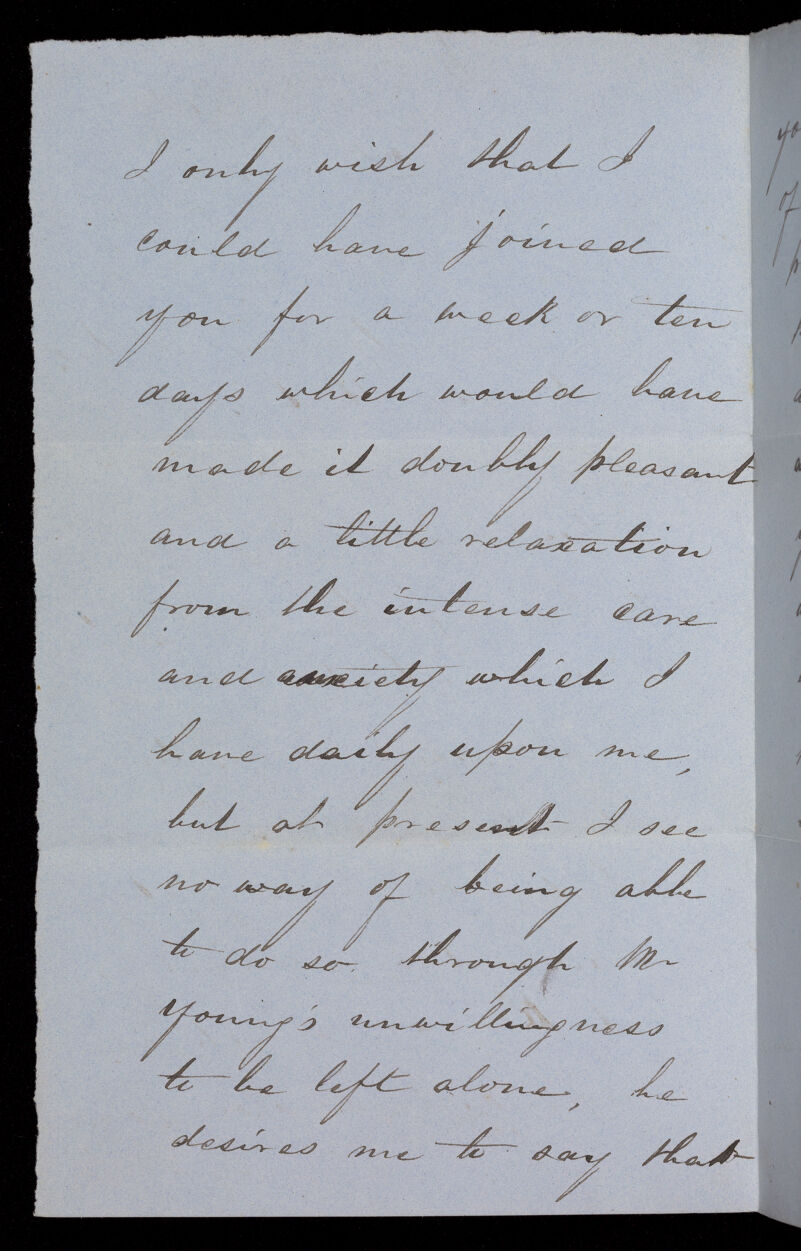 I only wish that I
could have joined
you for a week or ten
days which would have
made it doubly pleasant
and a little relaxation
from the intense care
and anxiety which I
have daily upon me,
but at present I see
no way of being able
to do so through Mr
Young's unwillingness
to be left alone, he
desires me to say that
yo
of